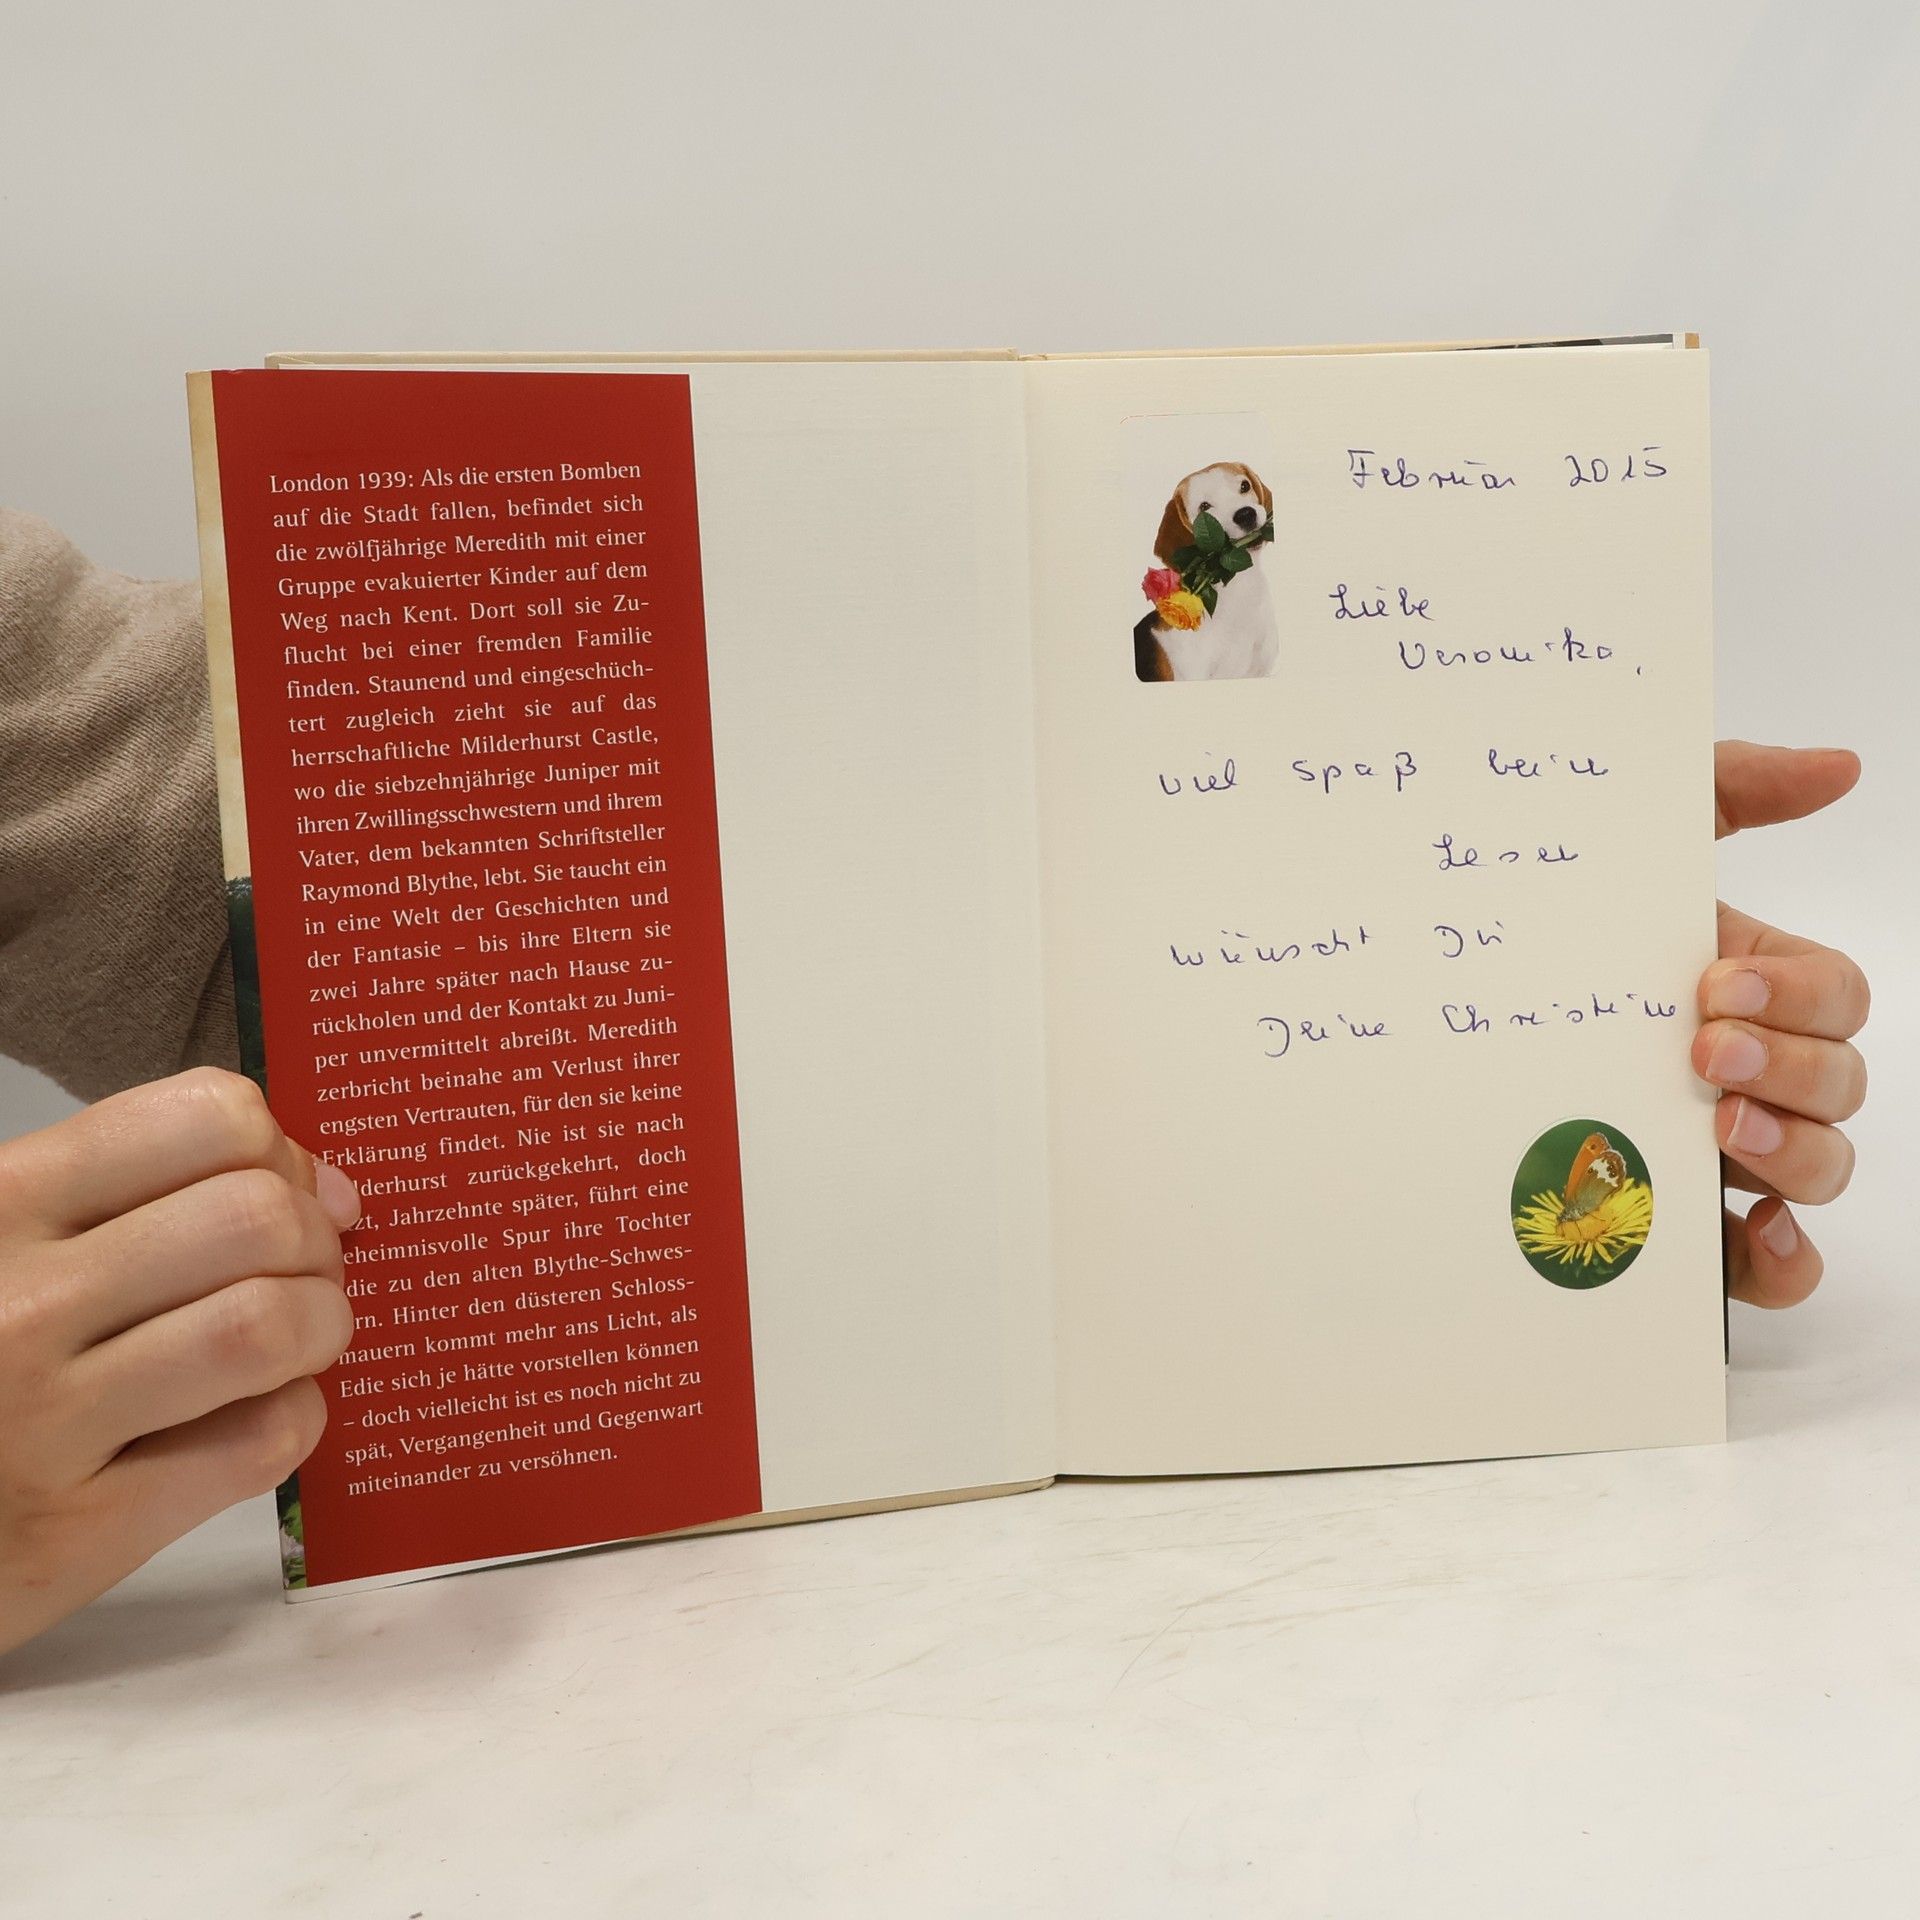 London 1939: Als die ersten Bomben
auf die Stadt fallen, befindet sich
die zwölfjährige Meredith mit einer
Gruppe evakuierter Kinder auf dem
Weg nach Kent. Dort soll sie Zu-
flucht bei einer fremden Familie
finden. Staunend und eingeschüch-
tert zugleich zieht sie auf das
herrschaftliche Milderhurst Castle,
wo die siebzehnjährige Juniper mit
ihren Zwillingsschwestern und ihrem
Vater, dem bekannten Schriftsteller
Raymond Blythe, lebt. Sie taucht ein
in eine Welt der Geschichten und
der Fantasie – bis ihre Eltern sie
zwei Jahre später nach Hause zu-
rückholen und der Kontakt zu Juni-
per unvermittelt abreißt. Meredith
zerbricht beinahe am Verlust ihrer
engsten Vertrauten, für den sie keine
Erklärung findet. Nie ist sie nach
lderhurst zurückgekehrt, doch
zt, Jahrzehnte später, führt eine
eheimnisvolle Spur ihre Tochter
die zu den alten Blythe-Schwes-
rn. Hinter den düsteren Schloss-
mauern kommt mehr ans Licht, als
Edie sich je hätte vorstellen können
– doch vielleicht ist es noch nicht zu
spät, Vergangenheit und Gegenwart
miteinander zu versöhnen.
Februar 2015
Liebe
Veronika,
viel Spaß beim
Lesen
wünscht Dir
Deine Christine